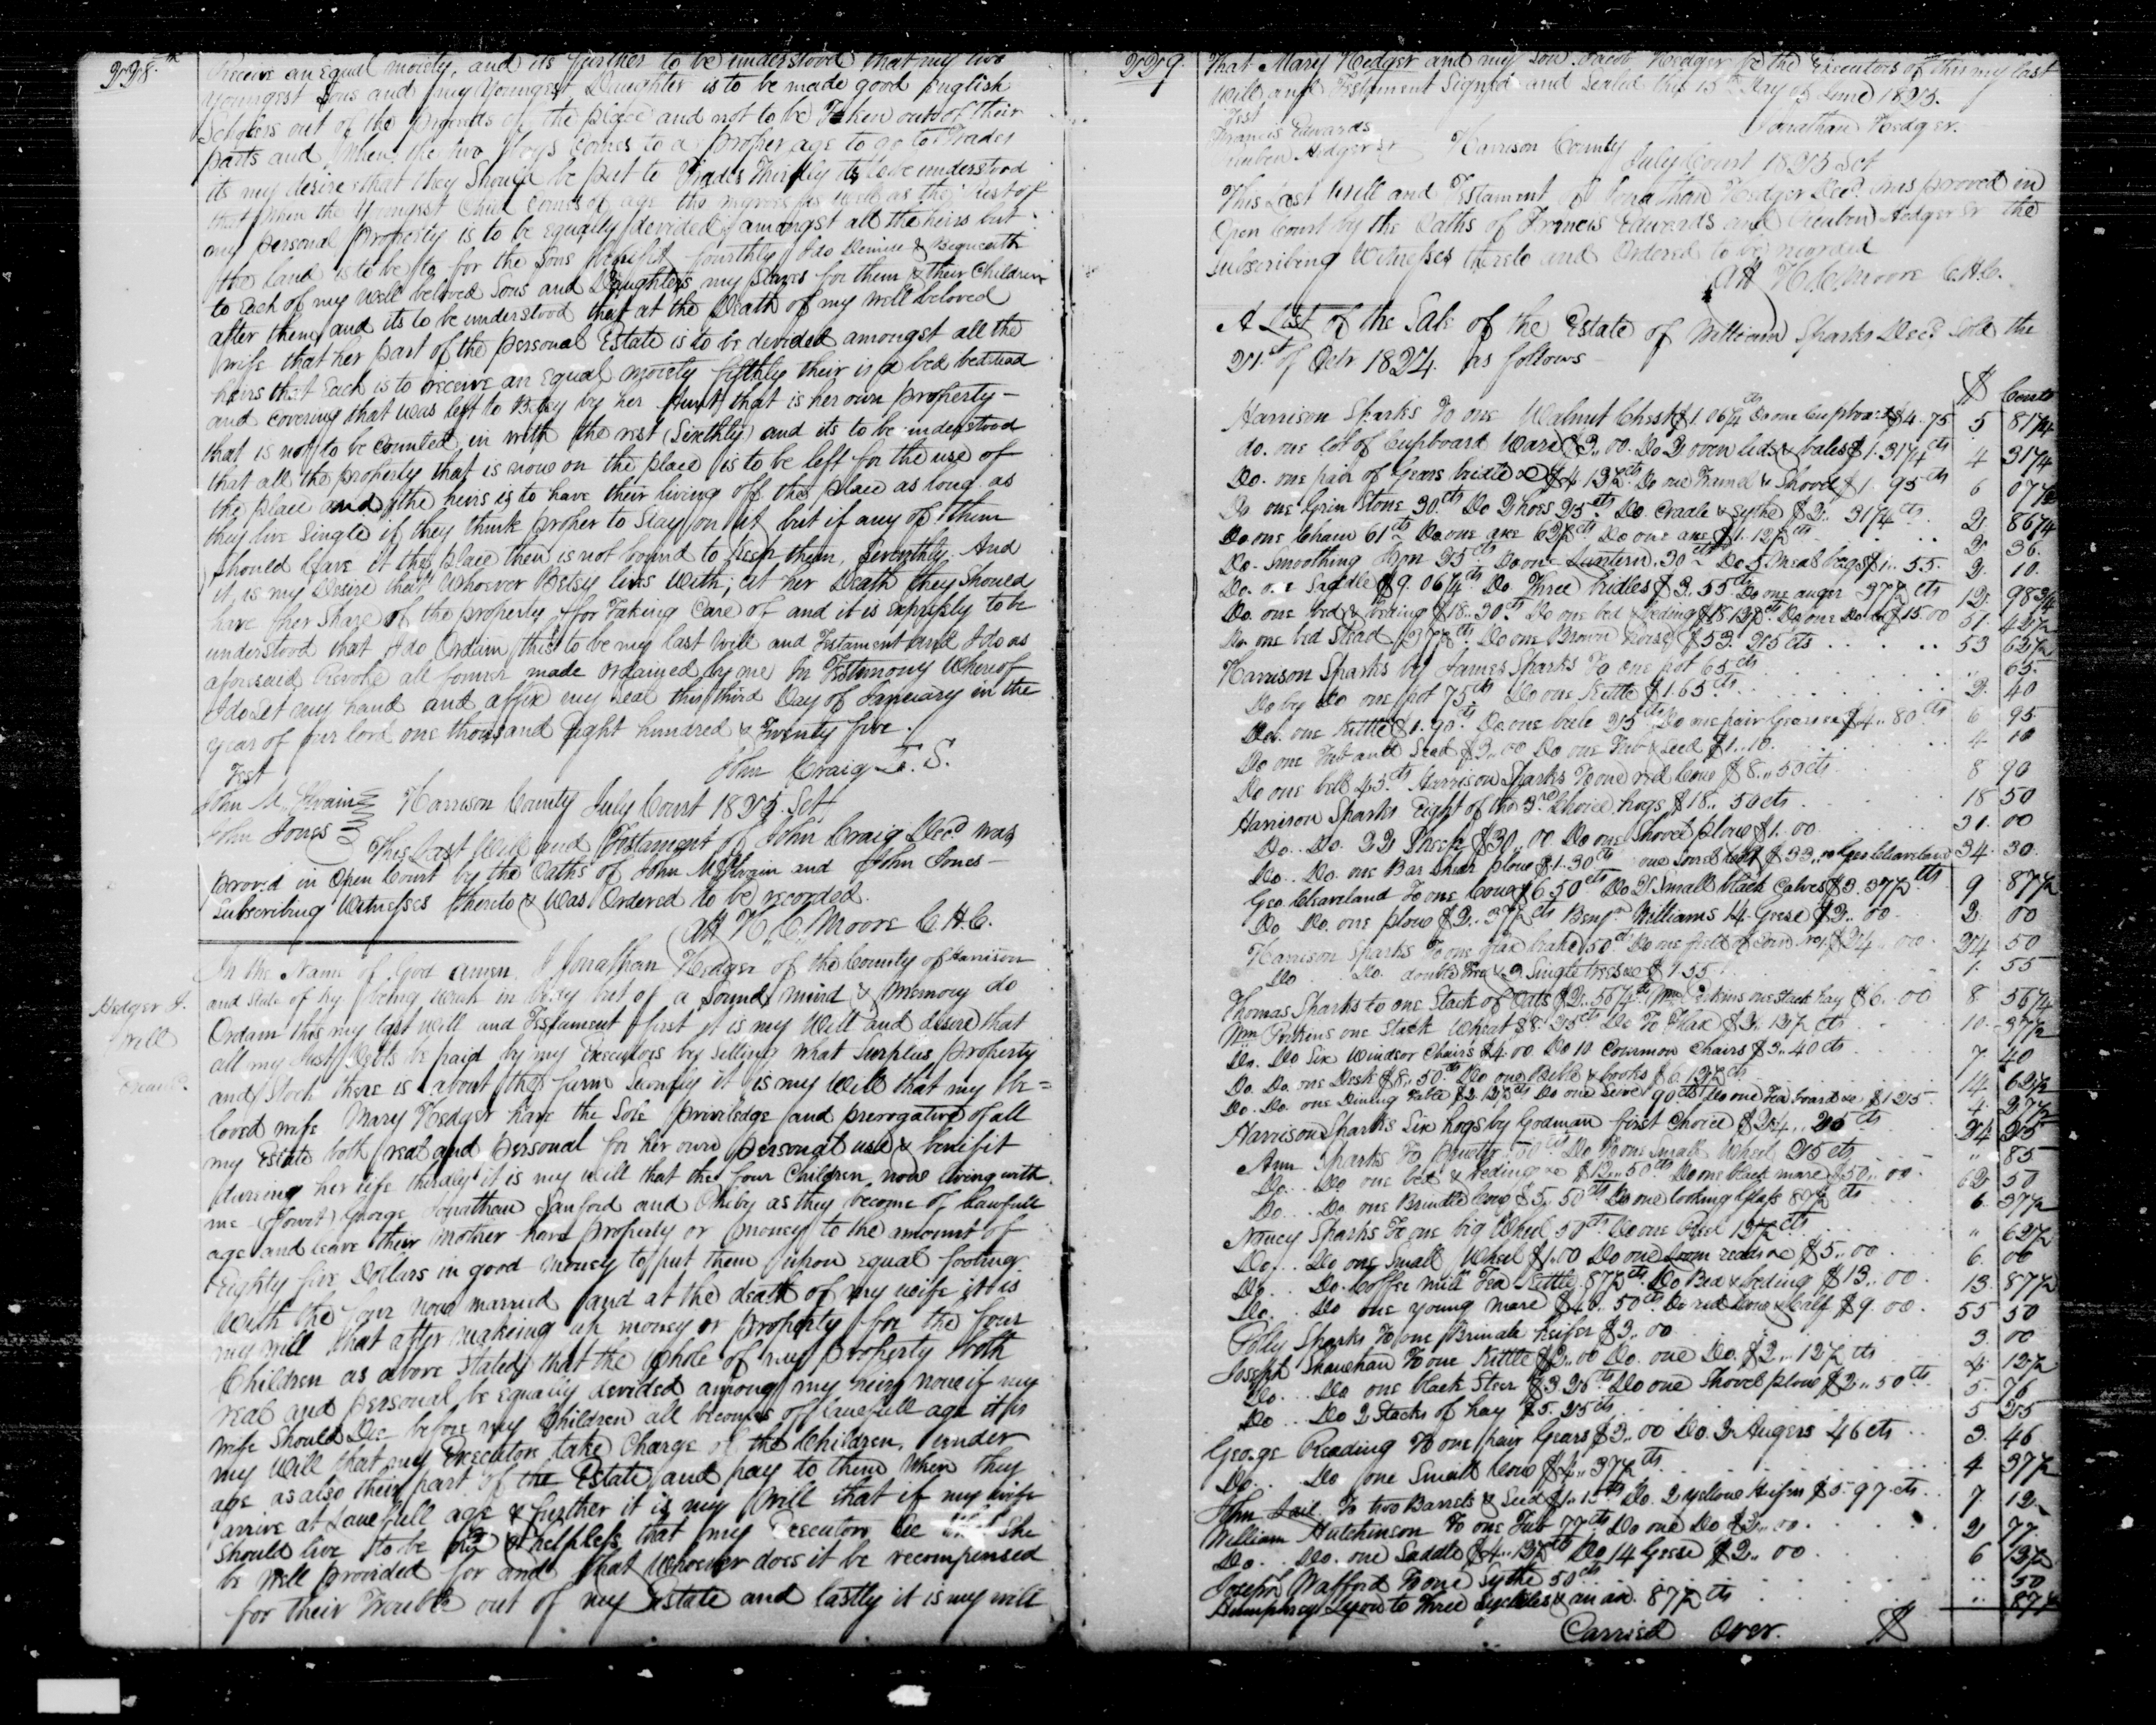 228.th
Receive an Equal moiety, and its further to be understood that my two
Youngest Sons and my Youngest Daughter is to be made good English
Scholers out of the proceeds of the place and not to be Taken out of their
parts and When the two Boys Comes to a propper age to go to Trades
its my desire that they Should be put to Trades Thirdly its to be understood
that when the Youngest Child comes of age the negroes as well as the Rest of
my personal Property is to be equally divided amongst all the heirs but
the land is to be for the Sons benefit fourthly I do Demise & Bequeath
to Each of my well beloved Sons and Daughters my Slaves for them & their Children
after them, and its to be understood that at the Death of my well beloved
wife that her part of the personal Estate is to be devided amongst all the
heirs that Each is to receive an Equal moiety fifthly their is a bed bedstead
and covering that was left to Betsy by her Aunt that is her own property -
that is not to be Counted in with the rest (Sixthly) and its to be understood
that all the property that is now on the place is to be left for the use of
the place and the heirs is to have their living off the place as long as
they live Single if they think proper to Stay on it but if any of them
Should leave it the place then is not bound to keep them, Seventhly. And
it is my Desire that Whoever Betsy lives with, at her Death they Should
have her Share of the property for Taking Care of and it is expressly to be
understood that I do Ordain this to be my last Will and Testament and I do as
aforesaid Revoke all former made Ordained by me In Testimony Whereof
I do Set my hand and affix my Seal this third Day of January in the
year of our lord one thousand Eight hundred & Twenty five.
Test
John Craig L. S.
John McIlvain
John Jones
Harrison County July Court 1825. Sct
This Last Will and Testament of John Craig Decd was
proved in Open Court by the Oaths of John McIlvain and John Jones -
Subscribing Witnesses thereto & Was Ordered to be recorded.
Att H. C. Moore C. H. C.
Hedger J.
Will
In the Name of God amen, I Jonathan Hedger of the County of Harrison
and State of Ky. being weak in body but of a Sound mind & Memory do
Ordain this my last will and Testament first it is my Will and desire that
all my Just Debts be paid by my Executors by Selling what Surplus property
and Stock there is about the farm Secondly it is my Will that my be=
loved wife Mary Hedger have the Sole priviledge and prerogative of all
my Estate both real and personal for her own personal use & benifit
durring her life thirdly it is my will that the four Children now living with
me (Towit) George Jonathan Sanford and Pheby as they become of lawfull
age and leave their mother have property or money to the amount of
Eighty five Dollars in good money to put them upon equal footing
With the four now married and at the death of my wife it is
my will that after making up money or property for the four
Children as above stated that the Whole of my property both
real and personal be equally devided among my heirs now if my
wife Should Die before my Children all becomes of lawfull age it is
my Will that my Executors take Charge of the Children. under
age as also their part of the Estate and pay to them when they
arrive at Lawfull age & further it is my Will that if my wife
Should live to be & helpless that my Executors See that She
be Well provided for and that whoever does it be recompensed
for their Trouble out of my Estate and lastly it is my will
229.
That Mary Hedger and my Son Jacob Hedger be the Executors of this my last
Will and Testament Signed and Sealed this 15th Day of June 1825.
Test
Jonathan Hedger.
Francis Edwards
Reuben Hedger Sr
Harrison County
July Court 1825 Sct
This Last Will and Testament of Jonathan Hedger Decd. was proved in
Open Court by the Oaths of Francis Edwards and Reuben Hedger Sr the
Subscribing Witnesses thereto and Ordered to be recorded
Att H. C. Moore C. H. C.
A List of the Sale of the Estate of William Sparks Decd Sold the
21st of Octr 1824. as follows
$ Cents
Harrison Sparks To one Walnut Chest $1.06¼ cts Do one Cupboard $4.75 5 81¼
do. one lot of Cupboard Ware $3..00. Do 2 oven leds & bales $1.31¼ cts 4 31¼
Do. one pair of Gears bridle &c $4 12½ cts Do one Tramel & Shovel $1..95 cts 6 07½
Do one Grin Stone 30 cts Do 2 hoes 25 cts Do Cradle & sythe $2..31¼ cts 2 86¼
Do one Chain 61 cts Do one axe 62½ cts Do one axe $1.12½ cts 2 36.
Do. Smoothing Iron 25 cts Do one Lantern. 30 cts Do 5 Meal bags $1..55. 2 10.
Do. one Saddle $9.06¼ cts Do Three bridles $3..55 cts Do one auger 37½ cts 12 98¾
Do. one bed & beding $18..30 cts Do one bed & beding $18 12½ cts Do one Do $15.00 51 42½
Do one bed Stead 37½ cts. Do one Brown horse $53.25 cts 53 62½
Harrison Sparks by James Sparks To one pot 65 cts 65
Do by Do one pot 75 cts Do one Kettle $1.65 cts 2 40
Do. one Kettle $1.90 cts Do one bele 25 cts Do one pair Gears &c $4..80 cts 6 95
Do one Tub and Seed $3..00 Do one Tub & Seed $1..10. 4 10
Do one bell 45 cts Harrison Sparks To one red Cow $8..50 cts 8 90
Harrison Sparks Eight of the 3rd Choice hogs $18..50 cts 18 50
Do.. Do. 22 Sheep $30..00 Do one Shovel plow $1.00 31 00
Do.. Do. one Bar Shear plow $1.30 cts one Sorrel Colt $33..00 Geo Cleaveland 34. 30
Geo Cleaveland To one Cow $6 50 cts Do 2 Small black Calves $3.37½ cts 9 87½
Do Do. one plow $2..37½ cts Benjn. Williams 14 Geese $2..00 2 00
Harrison Sparks To one flax brake 50 cts Do one field of Corn No 1. $24..00 24 50
Do Do. double tree & 2 Single trees &c $1 55 1. 55
Thomas Sparks to one Stack of Oats $2..56¼ cts Wm Perkins one Stack hay $6..00 8 56¼
Wm Perkins one Stack Wheat $8.25 cts Do To Flax $2..12½ cts 10. 37½
Do. Do Six Windsor Chairs $4.00 Do 10 Common Chairs $3..40 cts 7. 40
Do. Do. one Desk $8..50 cts Do one Bible & books $6.12½ cts 14 62½
Do. Do. one Dining Table $2.12½ cts Do one Seive 90 cts Do one Tea board &c $1 25 4 27½
Harrison Sparks Six hogs by Godman first Choice $24..25 cts 24 25
Ann Sparks To Pewter cts Do To one Small Wheel 25 cts " 85
Do.. Do one bed & beding &c $12..50 cts Do one black mare $50..00 62 50
Do.. Do. one Brindle Cow $5..50 cts Do one looking Glass 87½ cts 6 37½
Nancy Sparks To one big Wheel 50 cts Do one Reel 12½ cts " 62½
Do... Do one Small Wheel $1.00 Do one Loom reads &c $5..00 6. 00
Do... Do. Coffee mill Tea Kettle 87½ cts Do Bed & beding $13..00 13. 87½
Do... Do one young mare $46..50 cts Do red Cow & Calf $9.00 55 50
Polly Sparks To one Brindle heifer $3..00 3 00
Joseph Shawhan To one Kettle $2..00 Do. one Do. $2..12½ cts 4 12½
Do... Do one black Steer $3 26 cts Do one Shovel plow $2..50 cts 5. 76
Do... Do 2 Stacks of hay $5.25 cts 5 25
George Reading To one pair Gears $3..00 Do. 2 Augers 46 cts 3. 46
Do.. Do one Small Cow $4..37½ cts 4 37½
John Lail To two Barrels & Seed $1..15 cts Do. 2 yellow Heifers $5.97 cts 7. 12
William Hutchinson To one Tub 77 cts Do one Do $2..00 2 77
Do.. Do. one Saddle $4..12½ cts Do 14 Geese $2..00 6 12½
Joseph Wafford To one Sythe 50 cts 50
Humphrey Lyon to Three Sickles & an ax. 87½ cts 87½
Carried Over. $